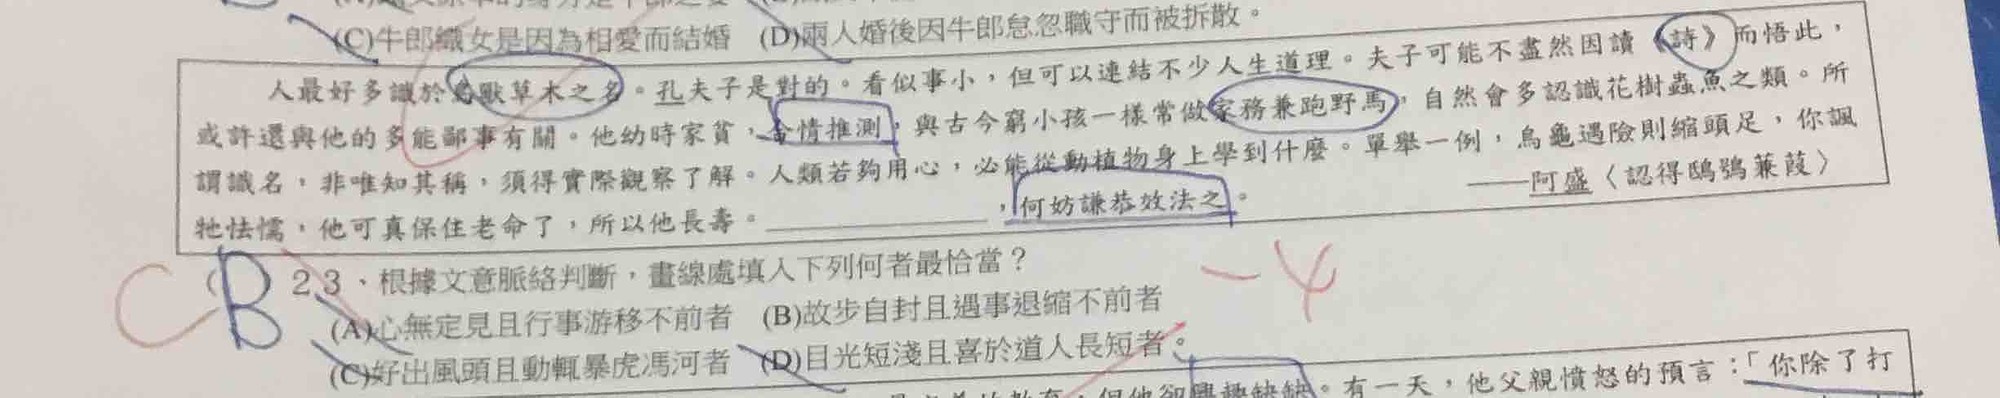 (C)牛郎織女是因為相愛而結婚 (D)兩人婚後因牛郎怠忽職守而被拆散。
人最好多識於鳥獸草木之名。孔夫子是對的。看似事小，但可以連結不少人生道理。夫子可能不盡然因讀《詩》而悟此，
或許還與他的多能鄙事有關。他幼時家貧，合情推測，與古今窮小孩一樣常做家務兼跑野馬，自然會多認識花樹蟲魚之類。所
謂識名，非唯知其稱，須得實際觀察了解。人類若夠用心，必能從動植物身上學到什麼。單舉一例，烏龜遇險則縮頭足，你諷
牠怯懦，他可真保住老命了，所以他長壽。 ，何妨謙恭效法之。 ——阿盛〈認得鴟鴞蒹葭〉
C B 23、根據文意脈絡判斷，畫線處填入下列何者最恰當？ -4
(A)心無定見且行事游移不前者 (B)故步自封且遇事退縮不前者
(C)好出風頭且動輒暴虎馮河者 (D)目光短淺且喜於道人長短者。
。有一天，他父親憤怒的預言：「你除了打